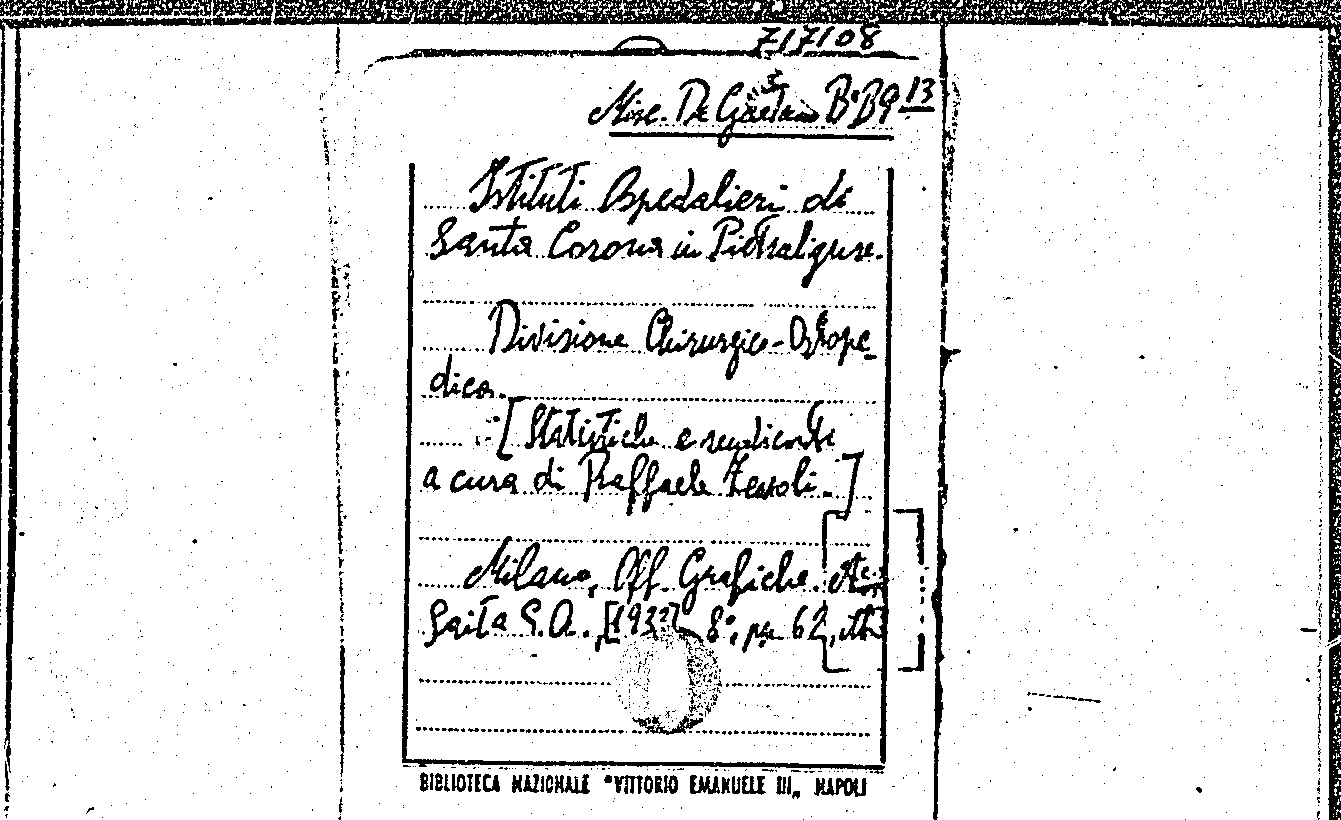 717108
Misc. De Gaetano B.B9 13
Istituti Ospedalieri di
Santa Corona in Pietraligure.
Divisione Chirurgico-Ortope-
dica.
[Statistiche e rendiconti
a cura di Raffaele Zenoli.]
Milano, Off. Grafiche.
Saita S.A. [193?] 8°, pp. 62,
BIBLIOTECA NAZIONALE "VITTORIO EMANUELE III„ NAPOLI